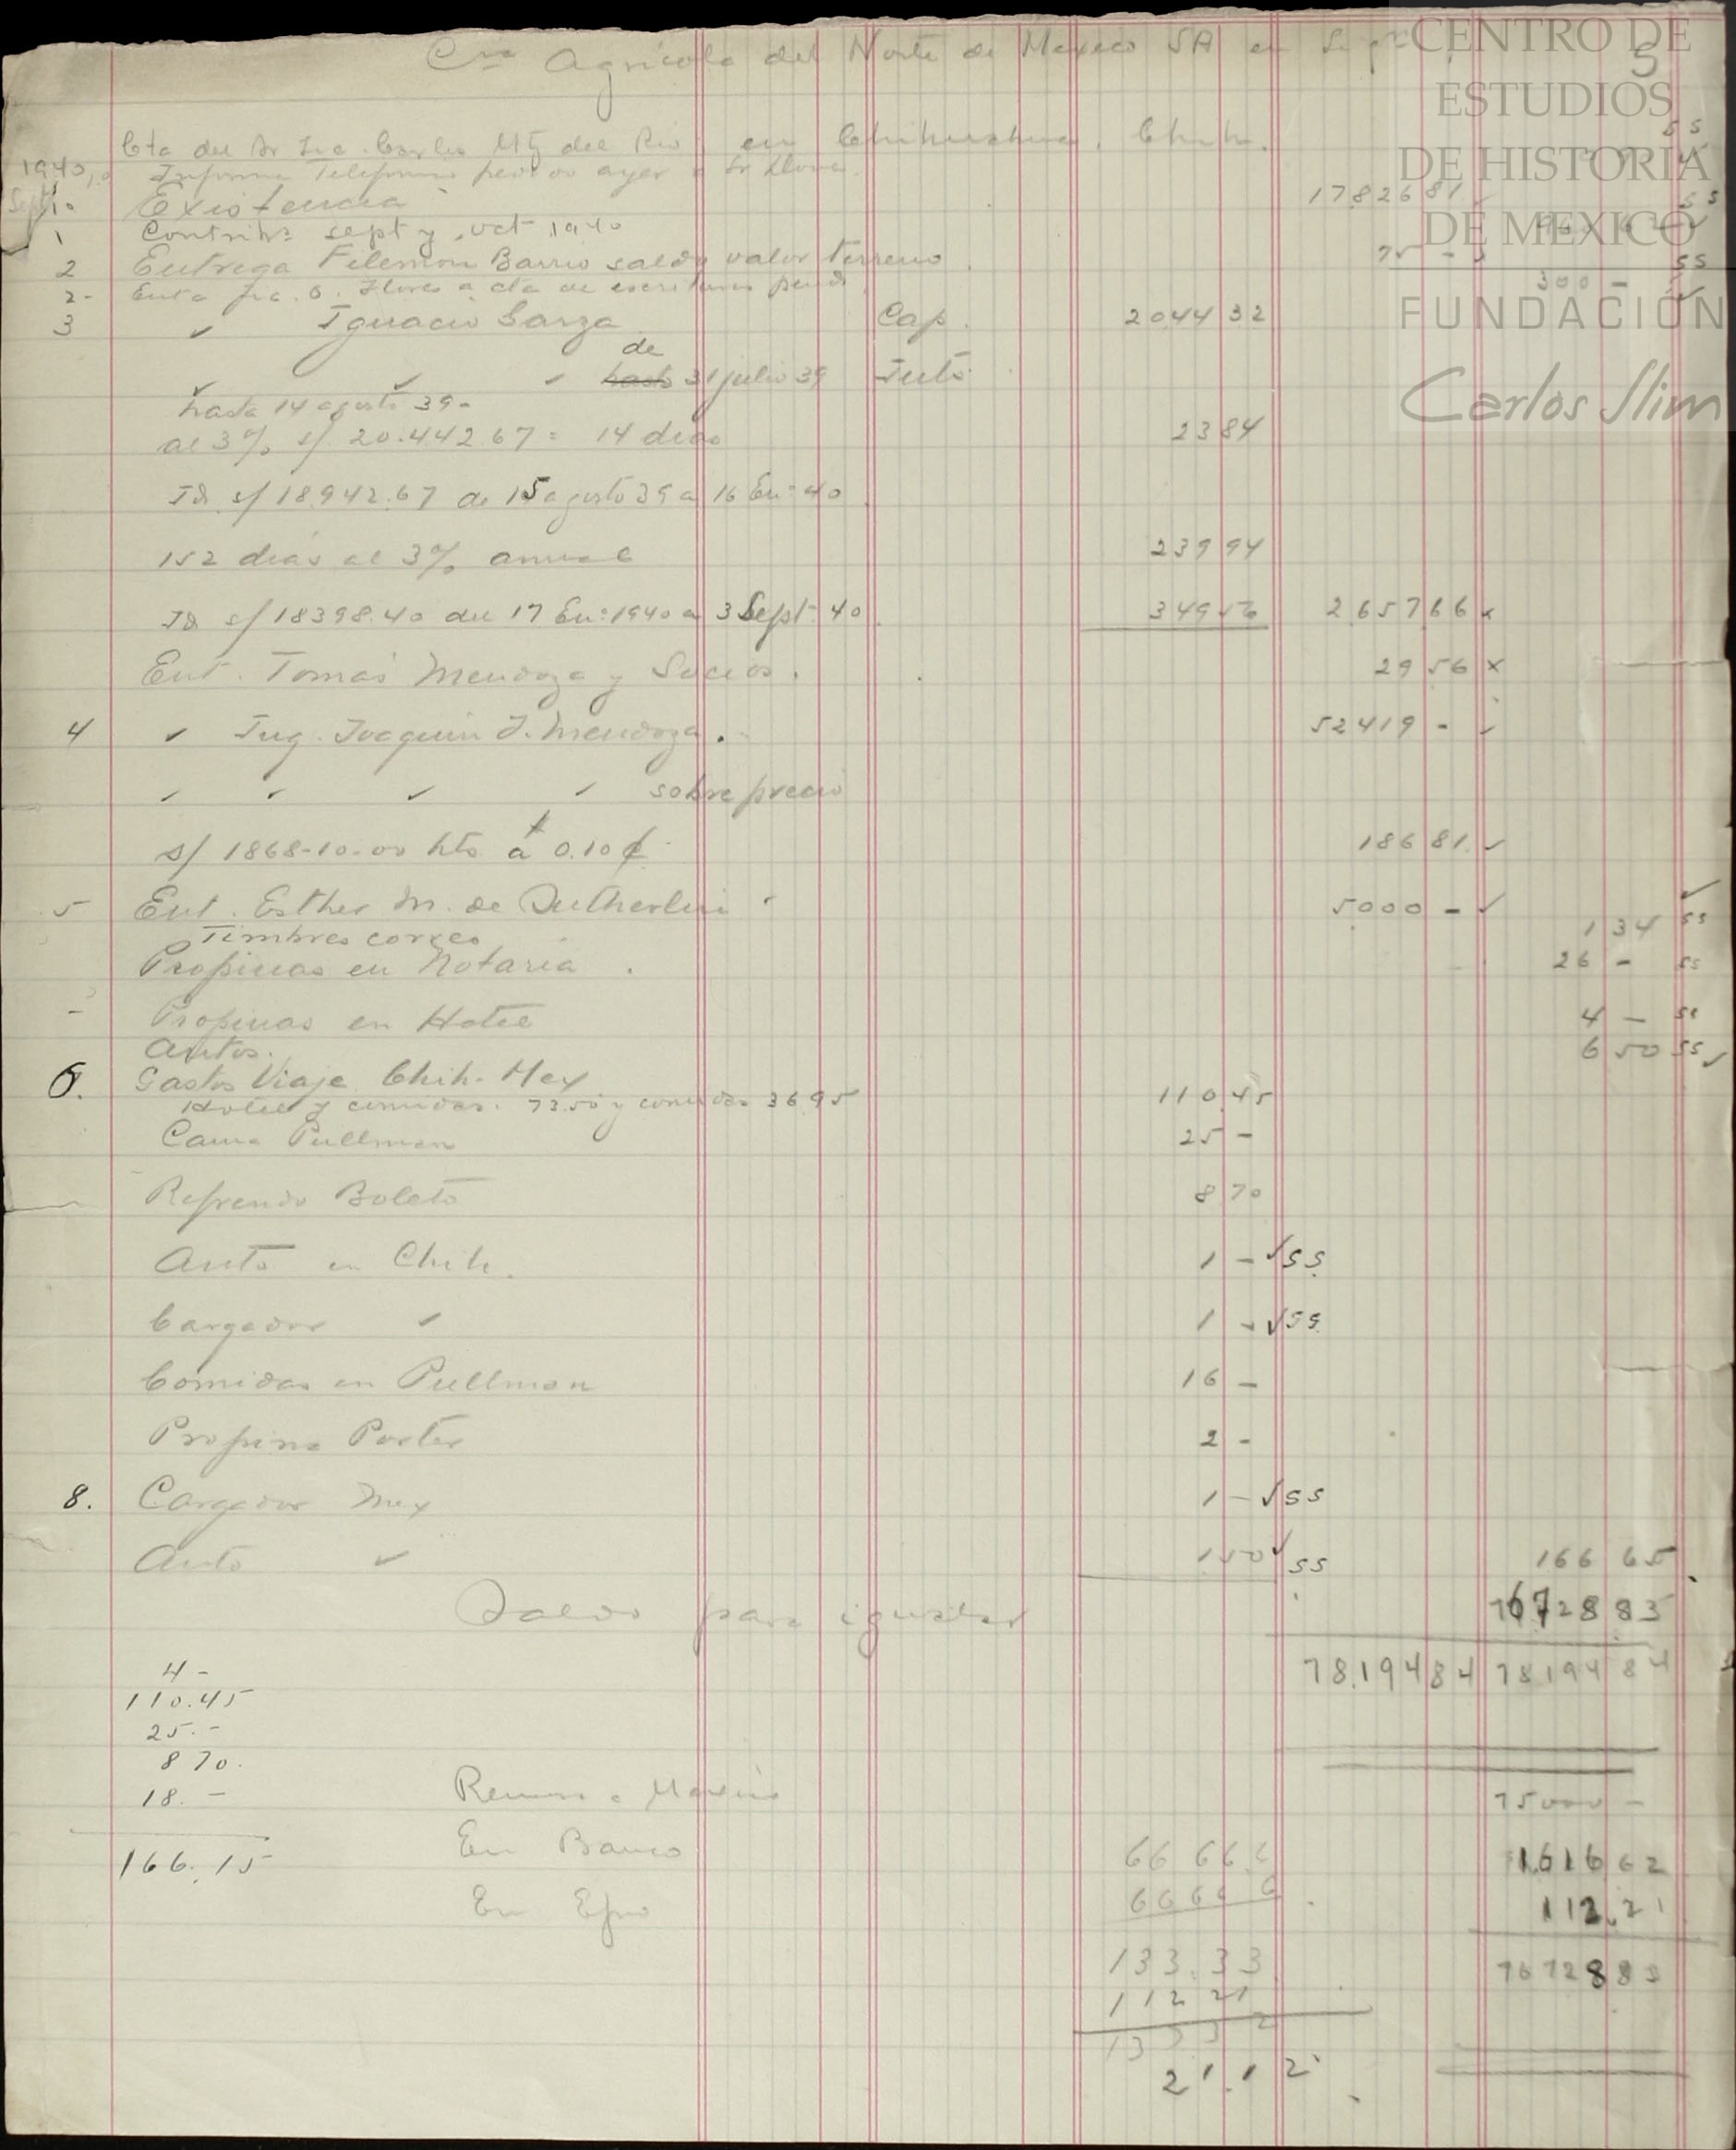 Cía Agrícola del Norte de Mexico SA en
5
Cta del Sr Lic. Carlos Mtz del Rio en Chihuahua, Chih.
1940 Informe Telefonico ayer a Sr
Sept 1o Existencia 17826 81
1 Contribs sept y oct 1940
2 Entrega Filemon Barrio saldo valor terreno 75 -
2- Ent a Lic. O. Flores a cta de escrituras pend. 300 -
3 ✓ Ignacio Garza Cap. 2044 32
de
✓ ✓ ✓ hasta 31 julio 39 Intš
hasta 14 agosto 39-
al 3% s/ 20.442.67 = 14 dias 23 84
Id s/ 18942.67 de 15 agosto 39 a 16 En: 40
152 dias al 3% anual 239 94
Id s/ 18398.40 del 17 En: 1940 a 3 Sept. 40 349 56 2657 66 x
Ent. Tomas Mendoza y Socios. 29 56 x
4 ✓ Ing. Joaquin J. Mendoza. 52419 - ✓
✓ ✓ ✓ ✓ sobre precio
s/ 1868-10-00 hts a 0.10 ¢ 186 81 ✓
5 Ent. Esther M. de 5000 - ✓
Timbres correo 1 34 ss
Propinas en Notaria 26 - ss
Propinas en Hotel 4 - ss
Autos. 6 50 ss ✓
6. Gastos Viaje Chih - Mex
Hotel y comidas. 73.50 y comidas 36 95 110.45
Cama Pullman 25 -
Refrendo Boleto 8 70
Auto en Chih. 1 - ✓ ss
Cargador ✓ 1 - ✓ ss
Comidas en Pullman 16 -
Propina Porter 2 -
8. Cargador Mex 1 - ✓ ss
Auto ✓ 1 50 ✓ ss 166 65
Saldo para igualar 76728 83
78.194 84 78194 84
4 -
110.45
25. -
8 70.
18. -
166.15
Remesa a Mexico 75000 -
En Banco 66 66.6 1.616 62
En Efvo 66 66 6 112.21
133.33 76728 83
112 21
133 3 2
21.12
CENTRO DE
ESTUDIOS
DE HISTORIA
DE MEXICO
FUNDACIÓN
Carlos Slim